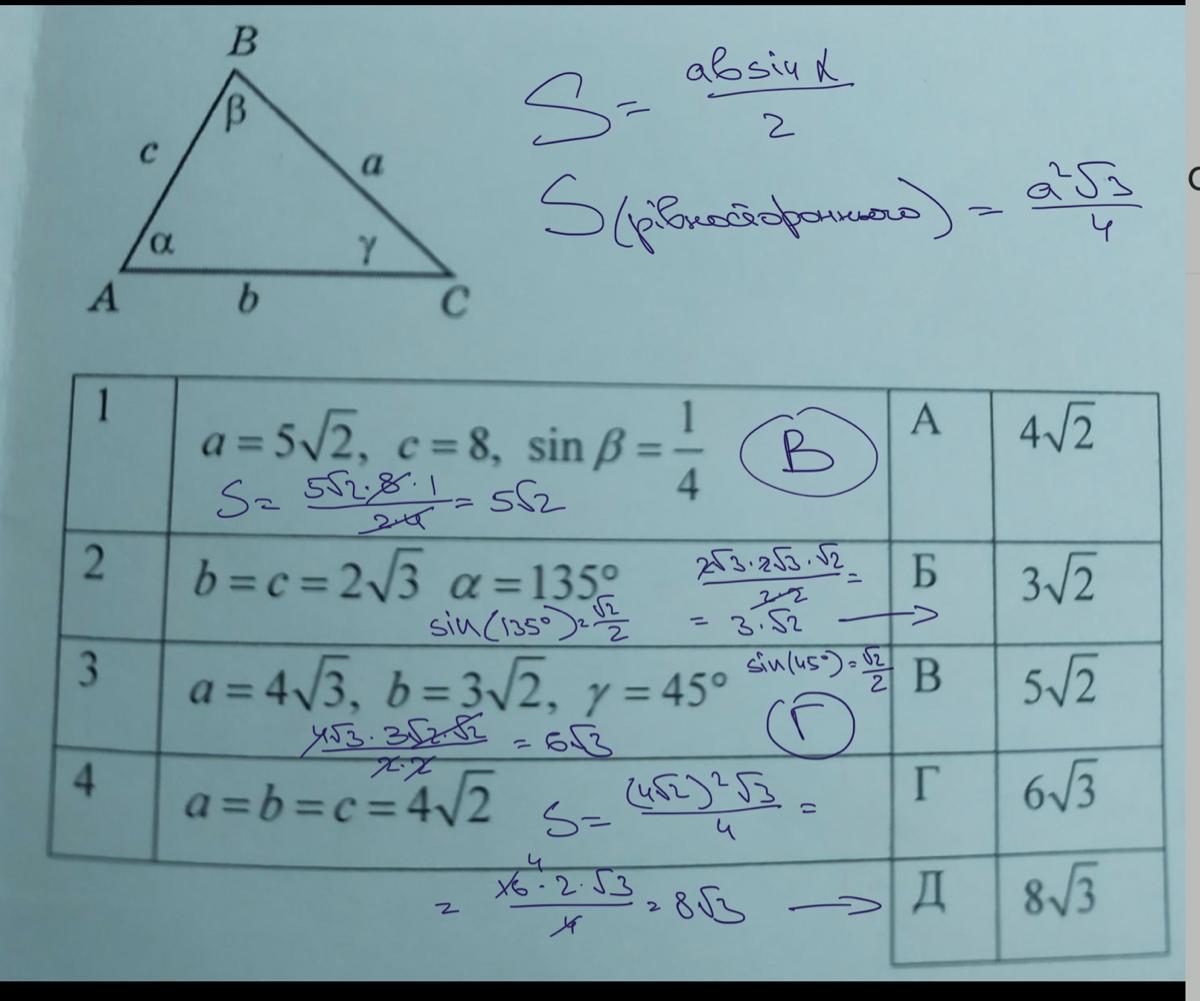 B
β
c
a
α
γ
A
b
C
S = ab sin α / 2
S(рівностороннього) = a²√3 / 4
1
a = 5√2, c = 8, sin β = 1/4
В
А
4√2
S = 5√2·8·1 / 2·4 = 5√2
2
b = c = 2√3 α = 135°
2√3·2√3·√2 / 2·2 =
Б
3√2
sin(135°) = √2/2
= 3·√2 →
3
a = 4√3, b = 3√2, γ = 45°
sin(45°) = √2/2
В
5√2
4√3·3√2·√2 / 2·2 = 6√3
Г
4
a = b = c = 4√2
S = (4√2)²√3 / 4 =
Г
6√3
= 16·2·√3 / 4 = 8√3 →
4
Д
8√3